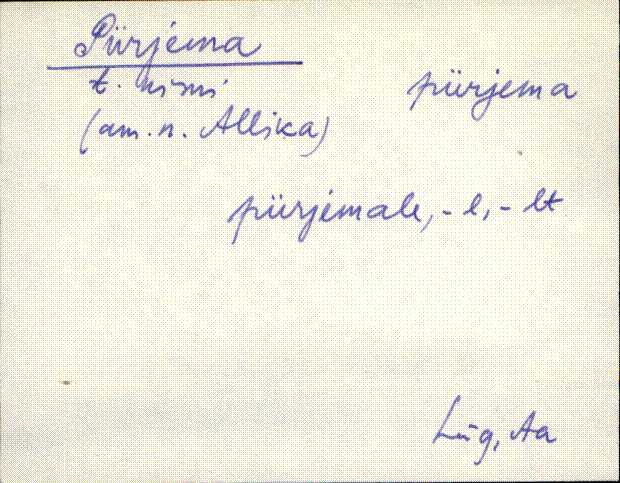 Pürjema
t. nimi
pürjema
(am. n. Allika)
pürjemale, -l, -lt
Lüg, Aa